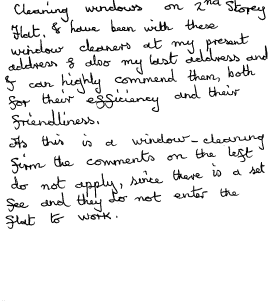 Cleaning windows on 2nd Storey
flat. I have been with these
window cleaners at my present
address & also my last address and
I can highly commend them, both
for their efficiency and their
friendliness.
As this is a window-cleaning
firm the comments on the left
do not apply, since there is a set
fee and they do not enter the
flat to work.